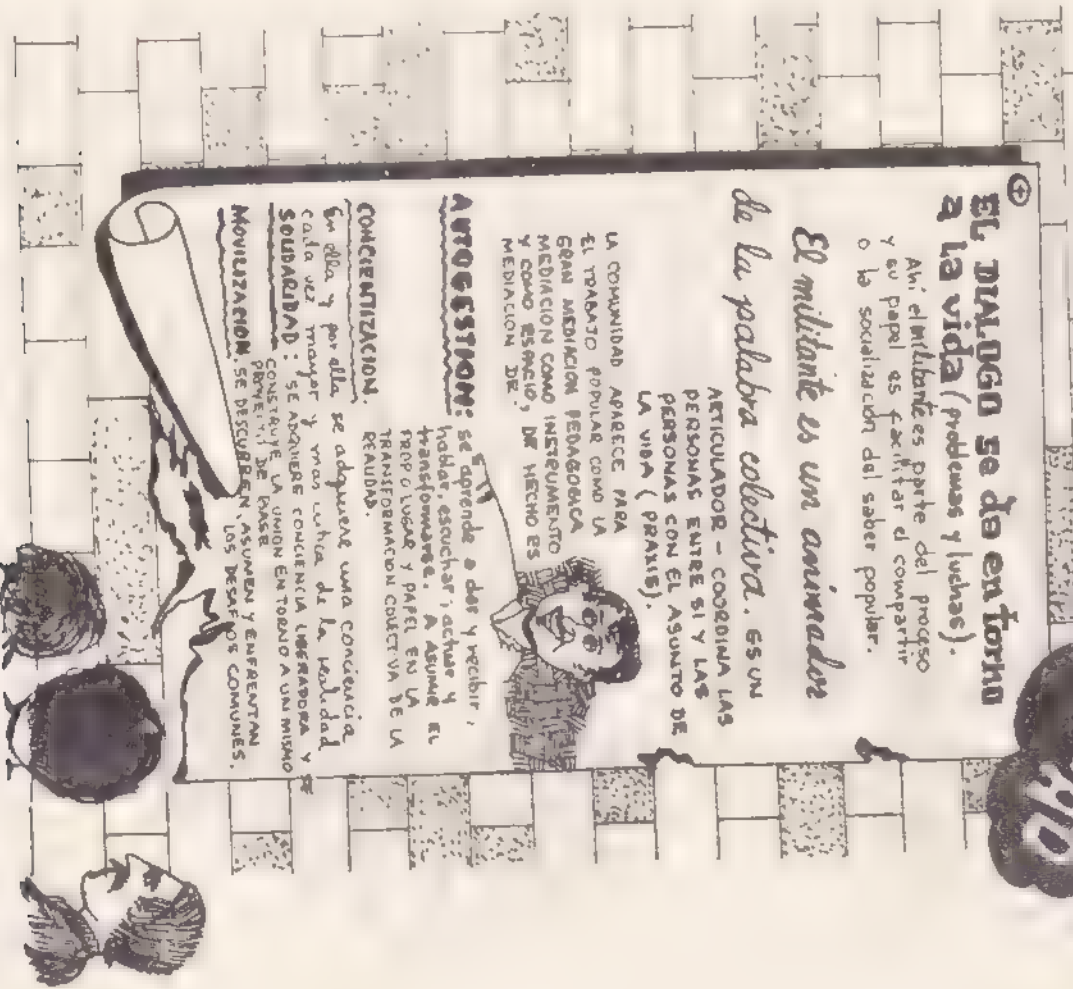 EL DIALOGO se da en torno
a la vida (problemas y luchas).
Ahí el militante es parte del proceso
y su papel es facilitar el compartir
o la socialización del saber popular.
El militante es un animador
de la palabra colectiva. ES UN
ARTICULADOR - COORDINA LAS
PERSONAS ENTRE SI Y LAS
PERSONAS CON EL ASUNTO DE
LA VIDA (PRAXIS).
LA COMUNIDAD APARECE PARA
EL TRABAJO POPULAR COMO LA
GRAN MEDIACION PEDAGOGICA
MEDIACION COMO INSTRUMENTO
Y COMO ESPACIO, DE HECHO ES
MEDIACION DE.
AUTOGESTION: se aprende a dar y recibir,
hablar, escuchar, actuar y
transformarse. A ASUMIR EL
PROPIO LUGAR Y PAPEL EN LA
TRANSFORMACION COLECTIVA DE LA
REALIDAD.
CONCIENTIZACION.
En ella y por ella se adquiere una conciencia
cada vez mayor y mas critica de la realidad
SOLIDARIDAD: SE ADQUIERE CONCIENCIA LIBERADORA Y SE
CONSTRUYE LA UNION EN TORNO A UN MISMO
PROYECTO DE BASE
MOVILIZACION. SE DESCUBREN, ASUMEN Y ENFRENTAN
LOS DESAFIOS COMUNES.